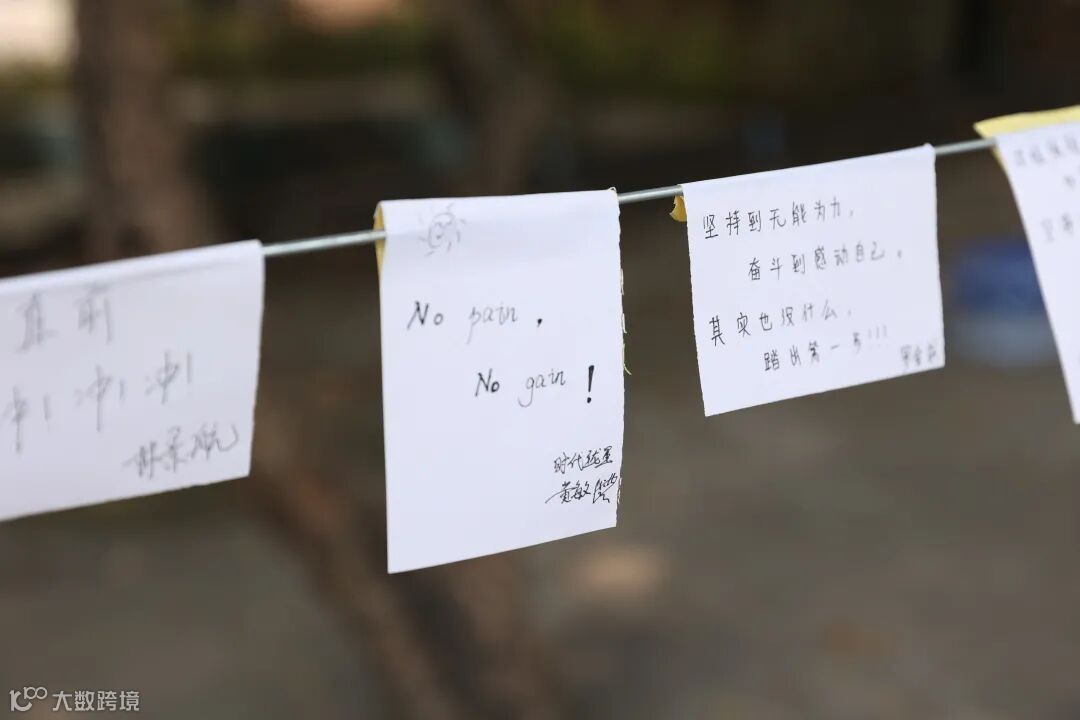 直前
冲!冲!冲!
No pain,
No gain!
坚持到无能为力,
奋斗到感动自己。
其实也没什么,
踏出第一步!!!
大数跨境